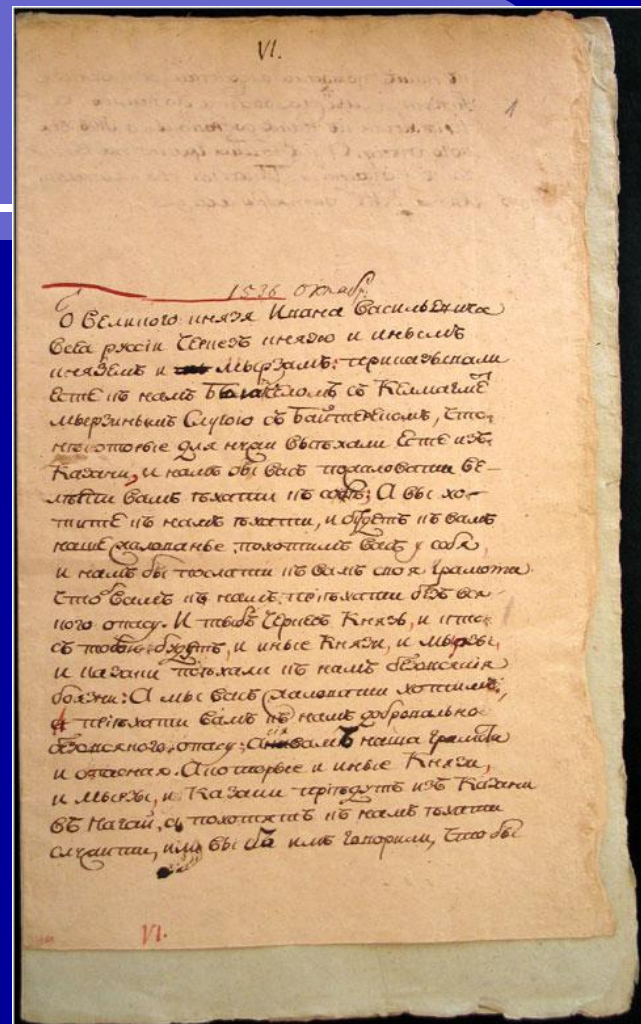 VI.
1
1536 октябр.
О Великого князя Ивана Васильевича
Всеа русiи Чернезъ князю и инымъ
княземъ и Мырзамъ: присылали
Есте къ намъ съ
Мырзинымъ Слугою съ что
которые для нужи выехали Есте изъ
Казани, и намъ бы васъ пожаловати ве-
лѣти вамъ ѣхати къ собѣ; А вы хо-
тите къ намъ ѣхати, и будетъ къ вамъ
наше жалованье, похотимъ васъ у собя,
и намъ бы послати къ вамъ своя грамота
что вамъ къ намъ приѣхати безъ вся-
кого опасу. И тыбъ Чернесъ Князь, и кто
съ тобою будутъ, и иные Князи, и Мырзы,
и Казаки поѣхали къ намъ безовсякiя
боязни: А мы васъ жаловати хотимъ;
а приѣхати вамъ къ намъ добровольно
безовсякого опасу; а вамъ наша грамота
и опасная. А которые и иные Князи,
и Мырзы, и Казаки прiѣдутъ изъ Казани
въ Нагаи, а похотятъ къ намъ ѣхати
служити, и вы бъ имъ говорили, чтобы
VI.